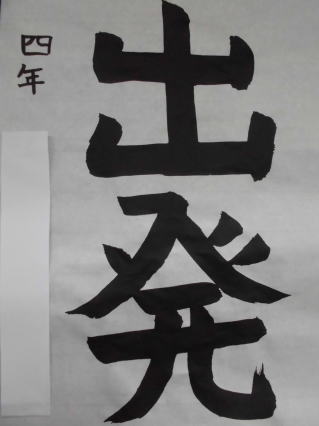 出発
四年